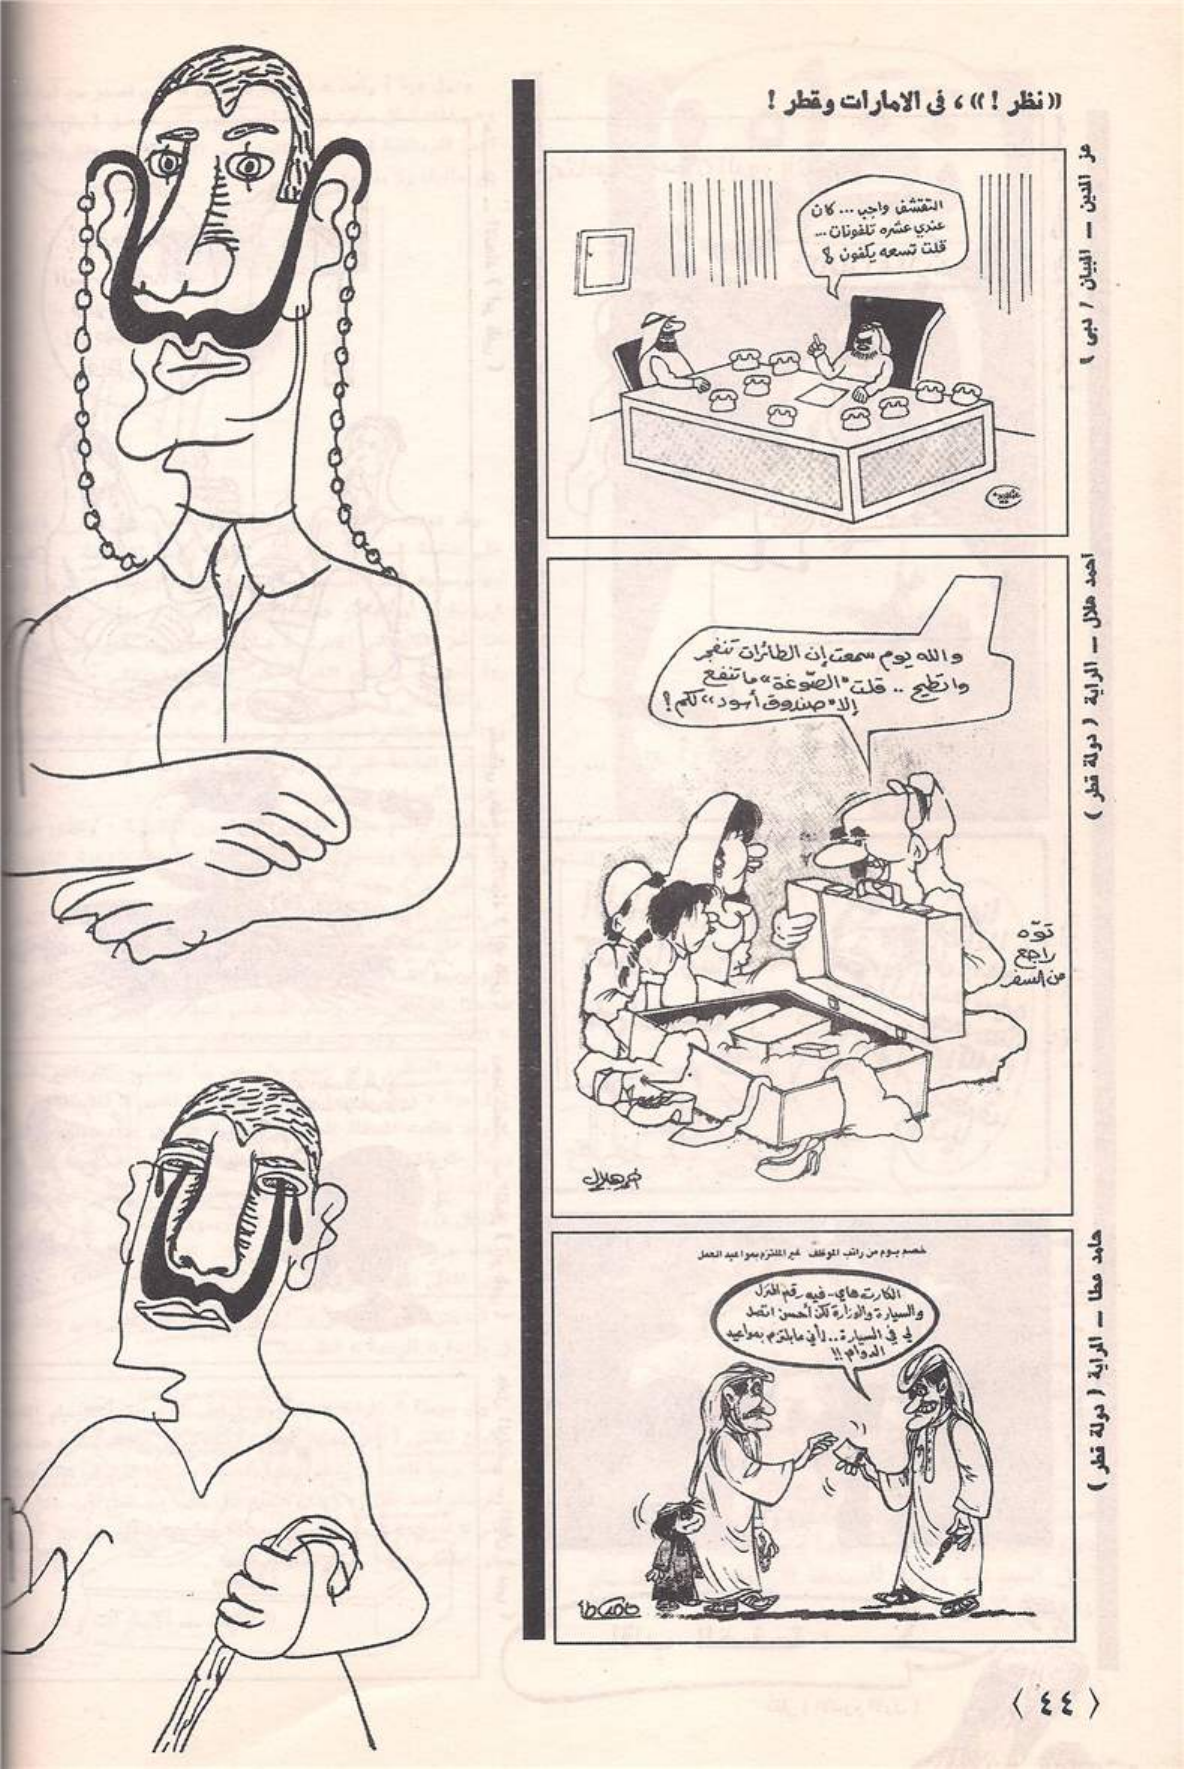 ((نظر !)) ، فى الامارات وقطر !
عز الدين ــ البيان ( دبى )
التقشف واجب ... كان
عندي عشره تلفونات ...
قلت تسعه يكفون
احمد هلال ــ الراية ( دولة قطر )
والله يوم سمعت إن الطائرات تنفجر
واتطيح .. قلت "الصّوغة" ما تنفع
إلا "صندوق أسود" لكم !
توّه
راجع
من السفر
احمد هلال
حامد عطا ــ الراية ( دولة قطر )
خصم يوم من راتب الموظف غير الملتزم بمواعيد العمل
الكارت هاي - فيه رقم المنزل
والسيارة والوزارة لكن أحسن اتصل
لي في السيارة .. لأني ما بلتزم بمواعيد
الدوام !!
حامد عطا
( ٤٤ )